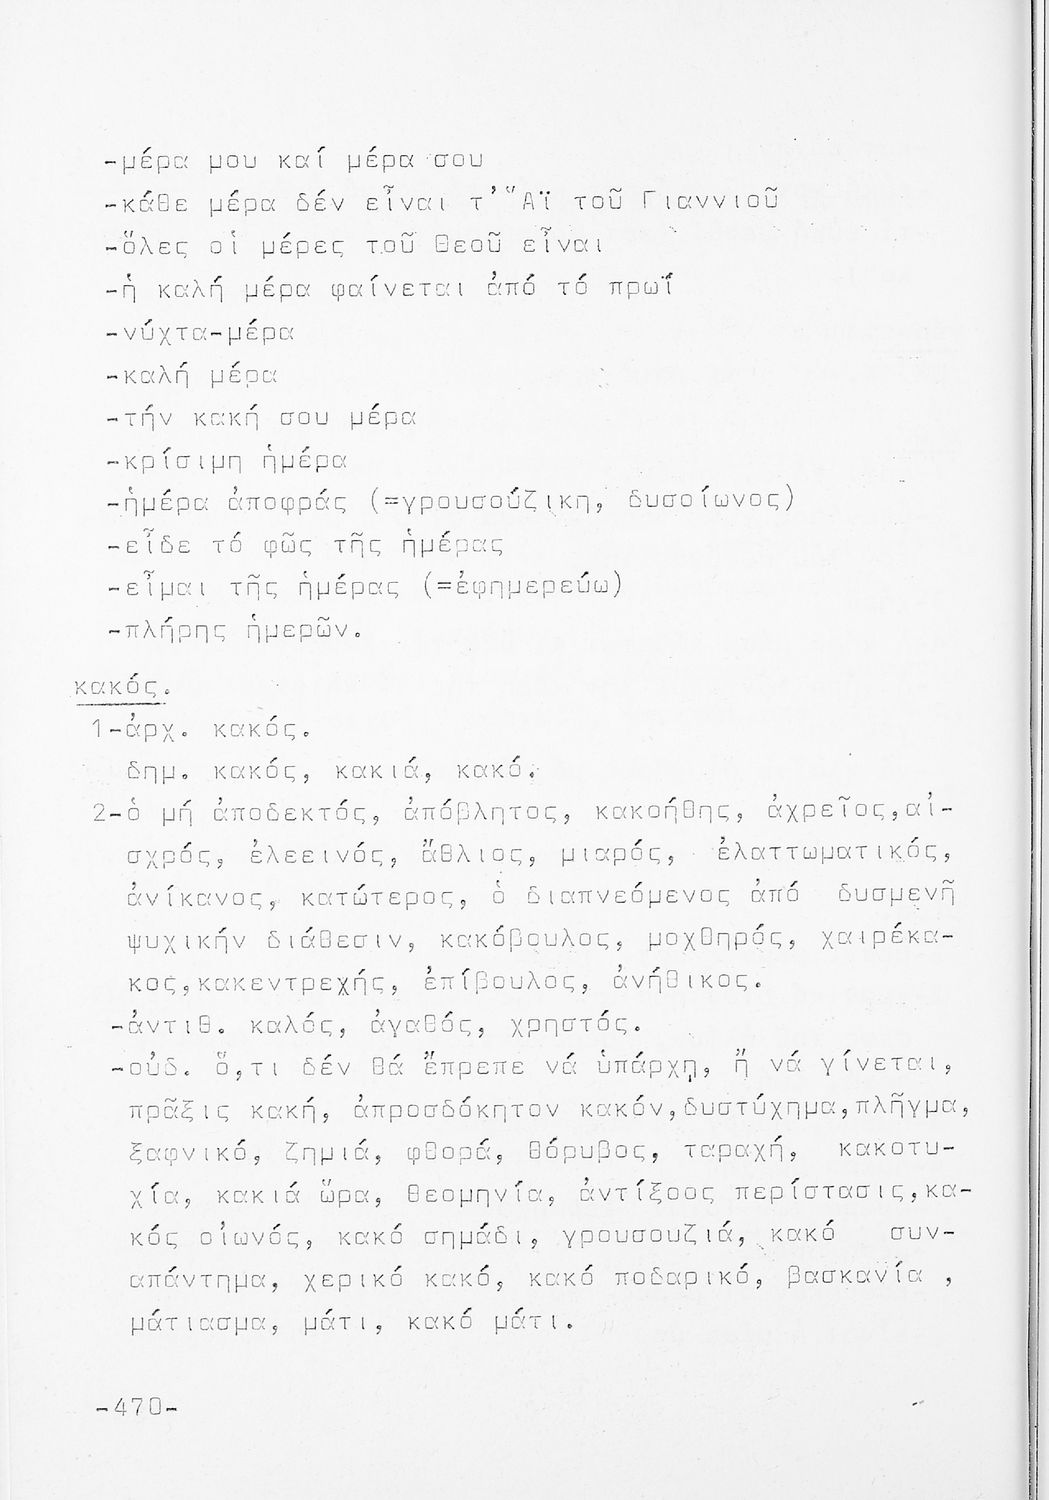 -μέρα μου καί μέρα σου
-κάθε μέρα δέν εἶναι τ' Ἅϊ τοῦ Γιαννιοῦ
-ὅλες οἱ μέρες τοῦ Θεοῦ εἶναι
-ἡ καλή μέρα φαίνεται ἀπό τό πρωΐ
-νύχτα-μέρα
-καλή μέρα
-τήν κακή σου μέρα
-κρίσιμη ἡμέρα
-ἡμέρα ἀποφράς (=γρουσούζικη, δυσοίωνος)
-εἶδε τό φῶς τῆς ἡμέρας
-εἶμαι τῆς ἡμέρας (=ἐφημερεύω)
-πλήρης ἡμερῶν.
κακός.
1-ἀρχ. κακός.
δημ. κακός, κακιά, κακό.
2-ὁ μή ἀποδεκτός, ἀπόβλητος, κακοήθης, ἀχρεῖος,αἰ-
σχρός, ἐλεεινός, ἄθλιος, μιαρός, ἐλαττωματικός,
ἀνίκανος, κατώτερος, ὁ διαπνεόμενος ἀπό δυσμενῆ
ψυχικήν διάθεσιν, κακόβουλος, μοχθηρός, χαιρέκα-
κος,κακεντρεχής, ἐπίβουλος, ἀνήθικος.
-ἀντιθ. καλός, ἀγαθός, χρηστός.
-οὐδ. ὅ,τι δέν θά ἔπρεπε νά ὑπάρχῃ, ἤ νά γίνεται,
πρᾶξις κακή, ἀπροσδόκητον κακόν,δυστύχημα,πλῆγμα,
ξαφνικό, ζημιά, φθορά, θόρυβος, ταραχή, κακοτυ-
χία, κακιά ὥρα, θεομηνία, ἀντίξοος περίστασις,κα-
κός οἰωνός, κακό σημάδι, γρουσουζιά, κακό συν-
απάντημα, χερικό κακό, κακό ποδαρικό, βασκανία ,
μάτιασμα, μάτι, κακό μάτι.
-470-